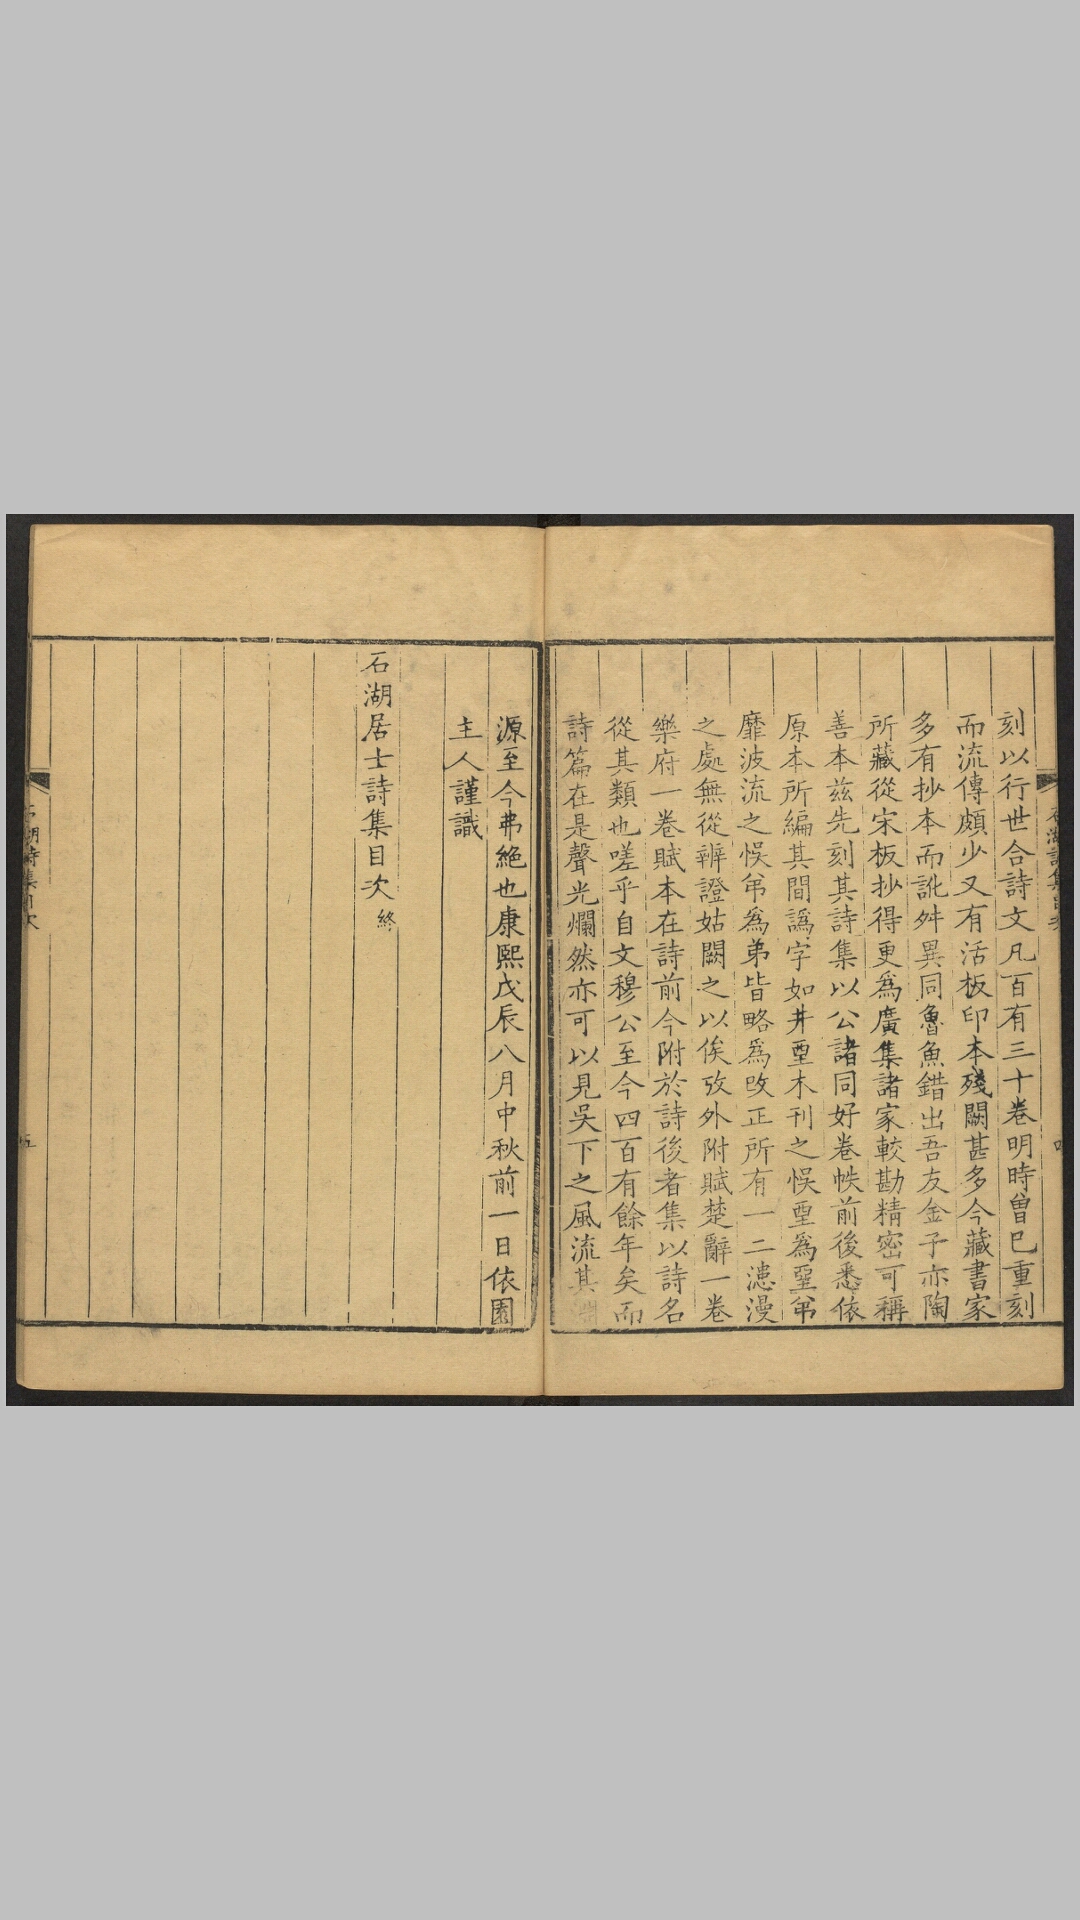 刻以行世合詩文凡百有三十卷明時曾巳重刻
而流傳頗少又有活板印本殘闕甚多今藏書家
多有抄本而訛舛異同魯魚錯出吾友金子亦陶
所藏從宋板抄得更為廣集諸家較勘精密可稱
善本兹先刻其詩集以公諸同好卷帙前後悉依
原本所編其間譌字如井壄木刊之悞壄為堊弟
靡波流之悞弟為弟皆略為改正所有一二漶漫
之處無從辨證姑闕之以俟攷外附賦楚辭一卷
樂府一卷賦本在詩前今附於詩後者集以詩名
從其類也嗟乎自文穆公至今四百有餘年矣而
詩篇在是聲光爛然亦可以見吳下之風流其淵
源至今弗絕也康熙戊辰八月中秋前一日依園
主人謹識
石湖居士詩集目次終
石湖詩集目次
五